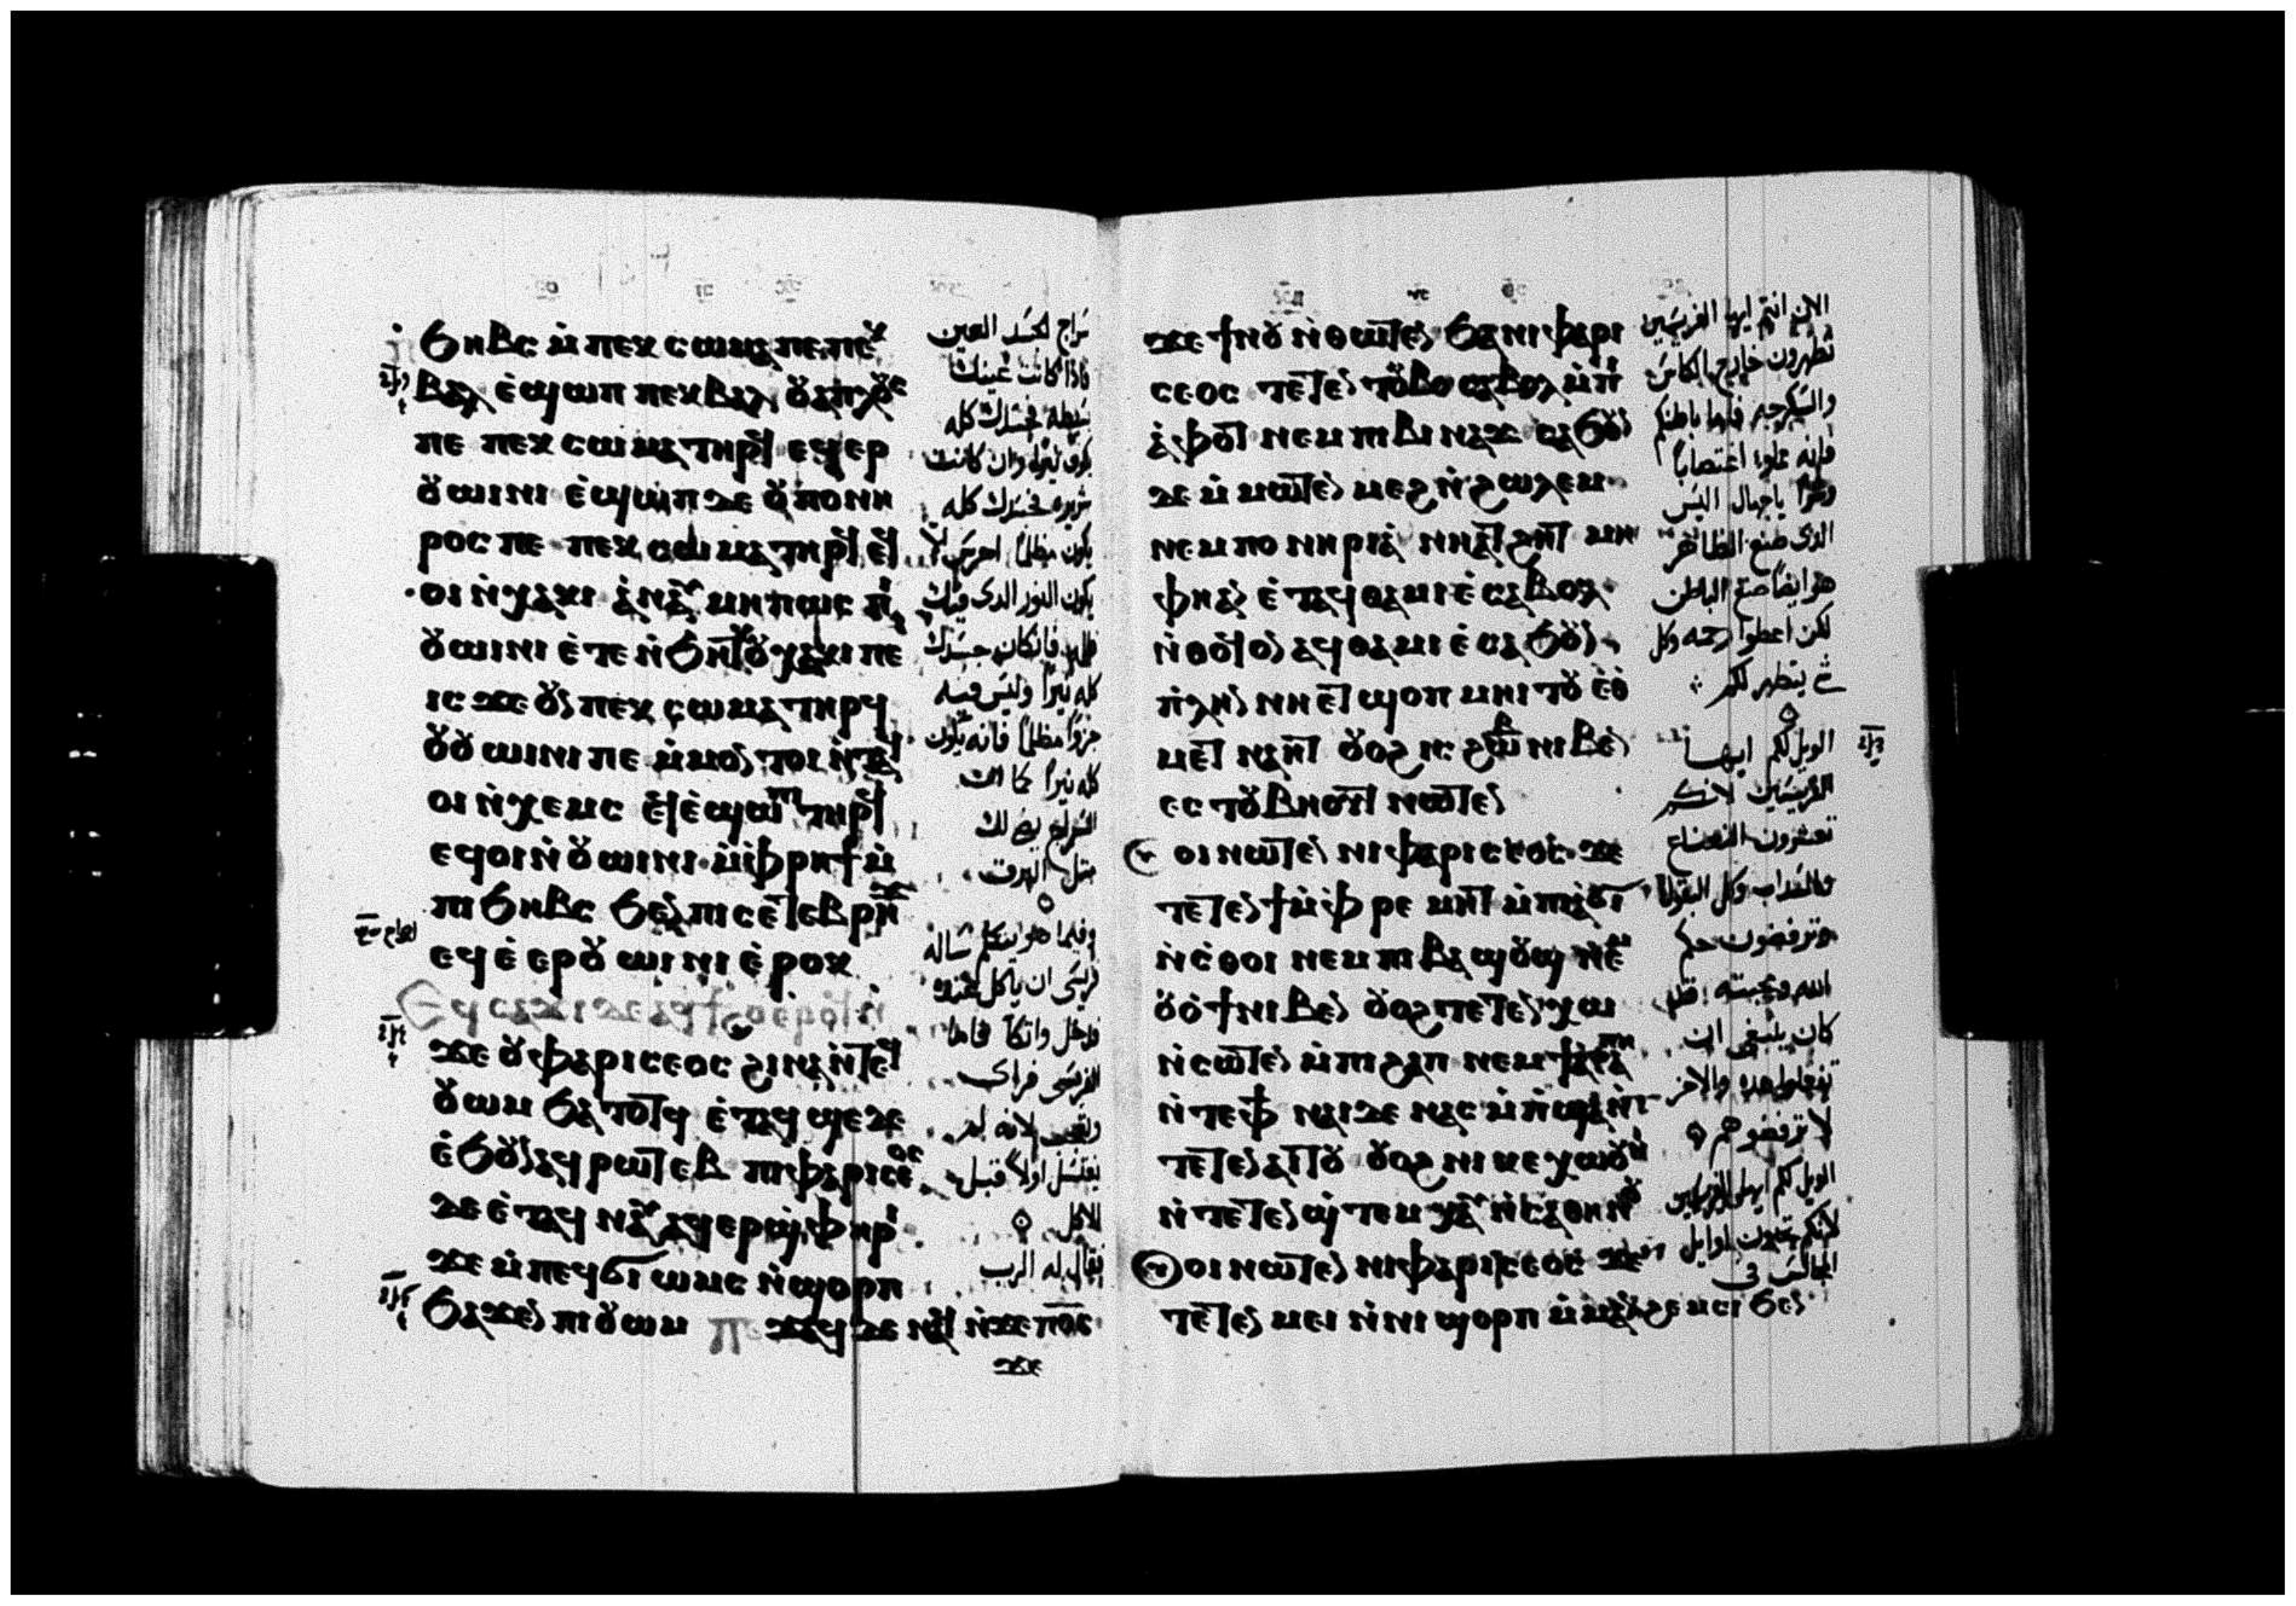 ϧⲏⲃⲥ ⲙ̇ⲡⲉⲕⲥⲱⲙⲁ ⲡⲉ ⲡⲉⲕ
ⲃⲁⲗ ⲉ̇ϣⲱⲡ ⲡⲉⲕⲃⲁⲗ ⲟⲩϩⲁⲡⲗⲟⲩⲥ
ⲡⲉ ⲡⲉⲕⲥⲱⲙⲁ ⲧⲏⲣϥ ⲉϥⲉⲣ
ⲟⲩⲱⲓⲛⲓ ⲉ̇ϣⲱⲡ ⲇⲉ ⲟⲩⲡⲟⲛⲏ
ⲣⲟⲥ ⲡⲉ ⲡⲉⲕⲥⲱⲙⲁ ⲧⲏⲣϥ ⲉϥ
ⲟⲓ ⲛ̇ⲭⲁⲕⲓ ⲁ̇ⲛⲁⲩ ⲙⲏⲡⲱⲥ ⲡⲓ
ⲟⲩⲱⲓⲛⲓ ⲉ̇ⲧⲉⲛ̇ϧⲏⲧⲕ ⲟⲩⲭⲁⲕⲓ ⲡⲉ
ⲓⲥϫⲉ ⲟⲩⲛ ⲡⲉⲕⲥⲱⲙⲁ ⲧⲏⲣϥ
ⲟⲩⲟⲩⲱⲓⲛⲓ ⲡⲉ ⲙ̇ⲙⲟⲛ ⲧⲟⲓ ⲛ̇ⲧⲁϥ
ⲟⲓ ⲛ̇ⲭⲉⲙⲥ ⲉϥⲉ̇ϣⲱⲡⲓ ⲧⲏⲣϥ
ⲉϥⲟⲓ ⲛ̇ⲟⲩⲱⲓⲛⲓ ⲙ̇ⲫⲣⲏϯ ⲙ̇
ⲡⲓϧⲏⲃⲥ ϧⲉⲛ ⲡⲓⲥⲉⲧⲉⲃⲣⲏϫ
ⲉϥⲉ̇ⲉⲣⲟⲩⲱⲓⲛⲓ ⲉ̇ⲣⲟⲕ
Ⲉϥⲥⲁϫⲓ ⲇⲉ ⲁϥϯϩⲟ ⲉⲣⲟϥ ⲛ̇
ϫⲉ ⲟⲩⲫⲁⲣⲓⲥⲉⲟⲥ ϩⲓⲛⲁ ⲛ̇ⲧⲉϥ
ⲟⲩⲱⲙ ϧⲁⲧⲟⲧϥ ⲉ̇ⲧⲁϥϣⲉ ⲇⲉ
ⲉ̇ϧⲟⲩⲛ ⲁϥⲣⲱⲧⲉⲃ ⲡⲓⲫⲁⲣⲓⲥⲉⲟⲥ
ⲇⲉ ⲉ̇ⲧⲁϥⲛⲁⲩ ⲁϥⲉⲣϣ̇ⲫⲏⲣⲓ
ϫⲉ ⲙ̇ⲡⲉϥϭⲓⲱⲙⲥ ⲛ̇ϣⲟⲣⲡ
ϧⲁϫⲉⲛ ⲡⲓⲟⲩⲱⲙ ⲡⲉϫⲁϥ ⲇⲉ ⲛⲁϥ ⲛ̇ϫⲉ ⲡⲟ̅ⲥ̅
ϫⲉ
سراج الجسد العين
فاذا كانت عينك
بسيطه فجسدك كله
يكون نيرا وان كانت
شريره فجسدك كله
يكون مظلما احرس لا
يكون النور الذى فيك
ظلمه فان كان جسدك
كله نيرا وليس فيه
جزوا مظلما فانه يكون
كله نيرا كما ان
السراج يضى لك
مثل البرق
وفيما هو يتكلم ساله
فريسى ان ياكل عنده
فدخل واتكا فاما
الفريسى فراى
وتعجب لانه لم
يغتسل اولا قبل
الاكل
فقال له الرب
ϫⲉ ϯⲛⲟⲩ ⲛ̇ⲑⲱⲧⲉⲛ ϧⲁ ⲛⲓⲫⲁⲣⲓ
ⲥⲉⲟⲥ ⲧⲉⲧⲉⲛⲧⲟⲩⲃⲟ ⲥⲁⲃⲟⲗ ⲙ̇ⲡⲓ
ⲁ̇ⲫⲟⲧ ⲛⲉⲙ ⲡⲓⲃⲓⲛⲁϫ ⲥⲁϧⲟⲩⲛ
ⲇⲉ ⲙ̇ⲙⲱⲧⲉⲛ ⲙⲉϩ ⲛ̇ϩⲱⲗⲉⲙ
ⲛⲉⲙ ⲡⲟⲛⲏⲣⲓⲁ̇ ⲛⲓⲁⲧϩⲏⲧ ⲙⲏ
ⲫⲏⲁⲛ ⲉ̇ⲧⲁϥⲑⲁⲙⲓⲉ̇ ⲥⲁⲃⲟⲗ
ⲛ̇ⲑⲟϥ ⲟⲛ ⲁϥⲑⲁⲙⲓⲉ̇ ⲥⲁϧⲟⲩⲛ
ⲡ̇ⲗⲏⲛ ⲛⲏⲉⲧϣⲟⲡ ⲙⲏⲓⲧⲟⲩ ⲉ̇ⲑ
ⲙⲉⲧⲛⲁⲏⲧ ⲟⲩⲟϩ ⲓⲥ ϩⲱⲃ ⲛⲓⲃⲉⲛ
ⲥⲉⲧⲟⲩⲃⲏⲟⲩⲧ ⲛⲱⲧⲉⲛ
ⲟⲩⲟⲓ ⲛⲱⲧⲉⲛ ⲛⲓⲫⲁⲣⲓⲥⲉⲟⲥ ϫⲉ
ⲧⲉⲧⲉⲛϯ ⲙ̇ⲫⲣⲉⲙⲏⲧ ⲙ̇ⲡⲓⲁ̇ϭⲓ
ⲛ̇ⲥ̇ⲑⲟⲓ ⲛⲉⲙ ⲡⲓⲃⲁϣⲟⲩϣ ⲛⲉⲙ
ⲟⲩⲟ̇ϯ ⲛⲓⲃⲉⲛ ⲟⲩⲟϩ ⲧⲉⲧⲉⲛⲭⲱ
ⲛ̇ⲥⲱⲧⲉⲛ ⲙ̇ⲡⲓϩⲁⲡ ⲛⲉⲙ ϯⲁ̇ⲅⲁⲡⲏ
ⲛ̇ⲧⲉ ⲫϯ ⲛⲁⲓ ⲇⲉ ⲛⲁⲥⲙ̇ⲡ̇ϣⲁ ⲛ̇
ⲧⲉⲧⲉⲛⲁⲓⲧⲟⲩ ⲟⲩⲟϩ ⲛⲓⲕⲉⲭⲱⲟⲩⲛⲓ
ⲛ̇ⲧⲉⲧⲉⲛϣ̇ⲧⲉⲙⲭⲁⲩ ⲛ̇ⲥⲁⲑⲏⲛⲟⲩ
ⲟⲩⲟⲓ ⲛⲱⲧⲉⲛ ⲛⲓⲫⲁⲣⲓⲥⲉⲟⲥ ϫⲉ
ⲧⲉⲧⲉⲛⲙⲉⲓ ⲛ̇ⲛⲓϣⲟⲣⲡ ⲙ̇ⲙⲁⲛ̇ϩⲉⲙⲥⲓ ϧⲉⲛ
الان انتم ايها الفريسيين
تطهرون خارج الكاس
والسكرجه فاما باطنكم
فانه مملوء اغتصابا
وشرا ياجهال اليس
الذى صنع الظاهر
هو ايضا صنع الباطن
لكن اعطوا رحمه وكل
شى يتطهر لكم
الويل لكم ايها
الفريسيين لانكم
تعشرون النعناع
والسداب وكل البقول
وترفضون حكم
الله ومحبته قد
كان ينبغى ان
تفعلوا هذه والاخر
لا ترفضوهم
الويل لكم ايها الفريسيين
لانكم تحبون اوايل
المجالس فى